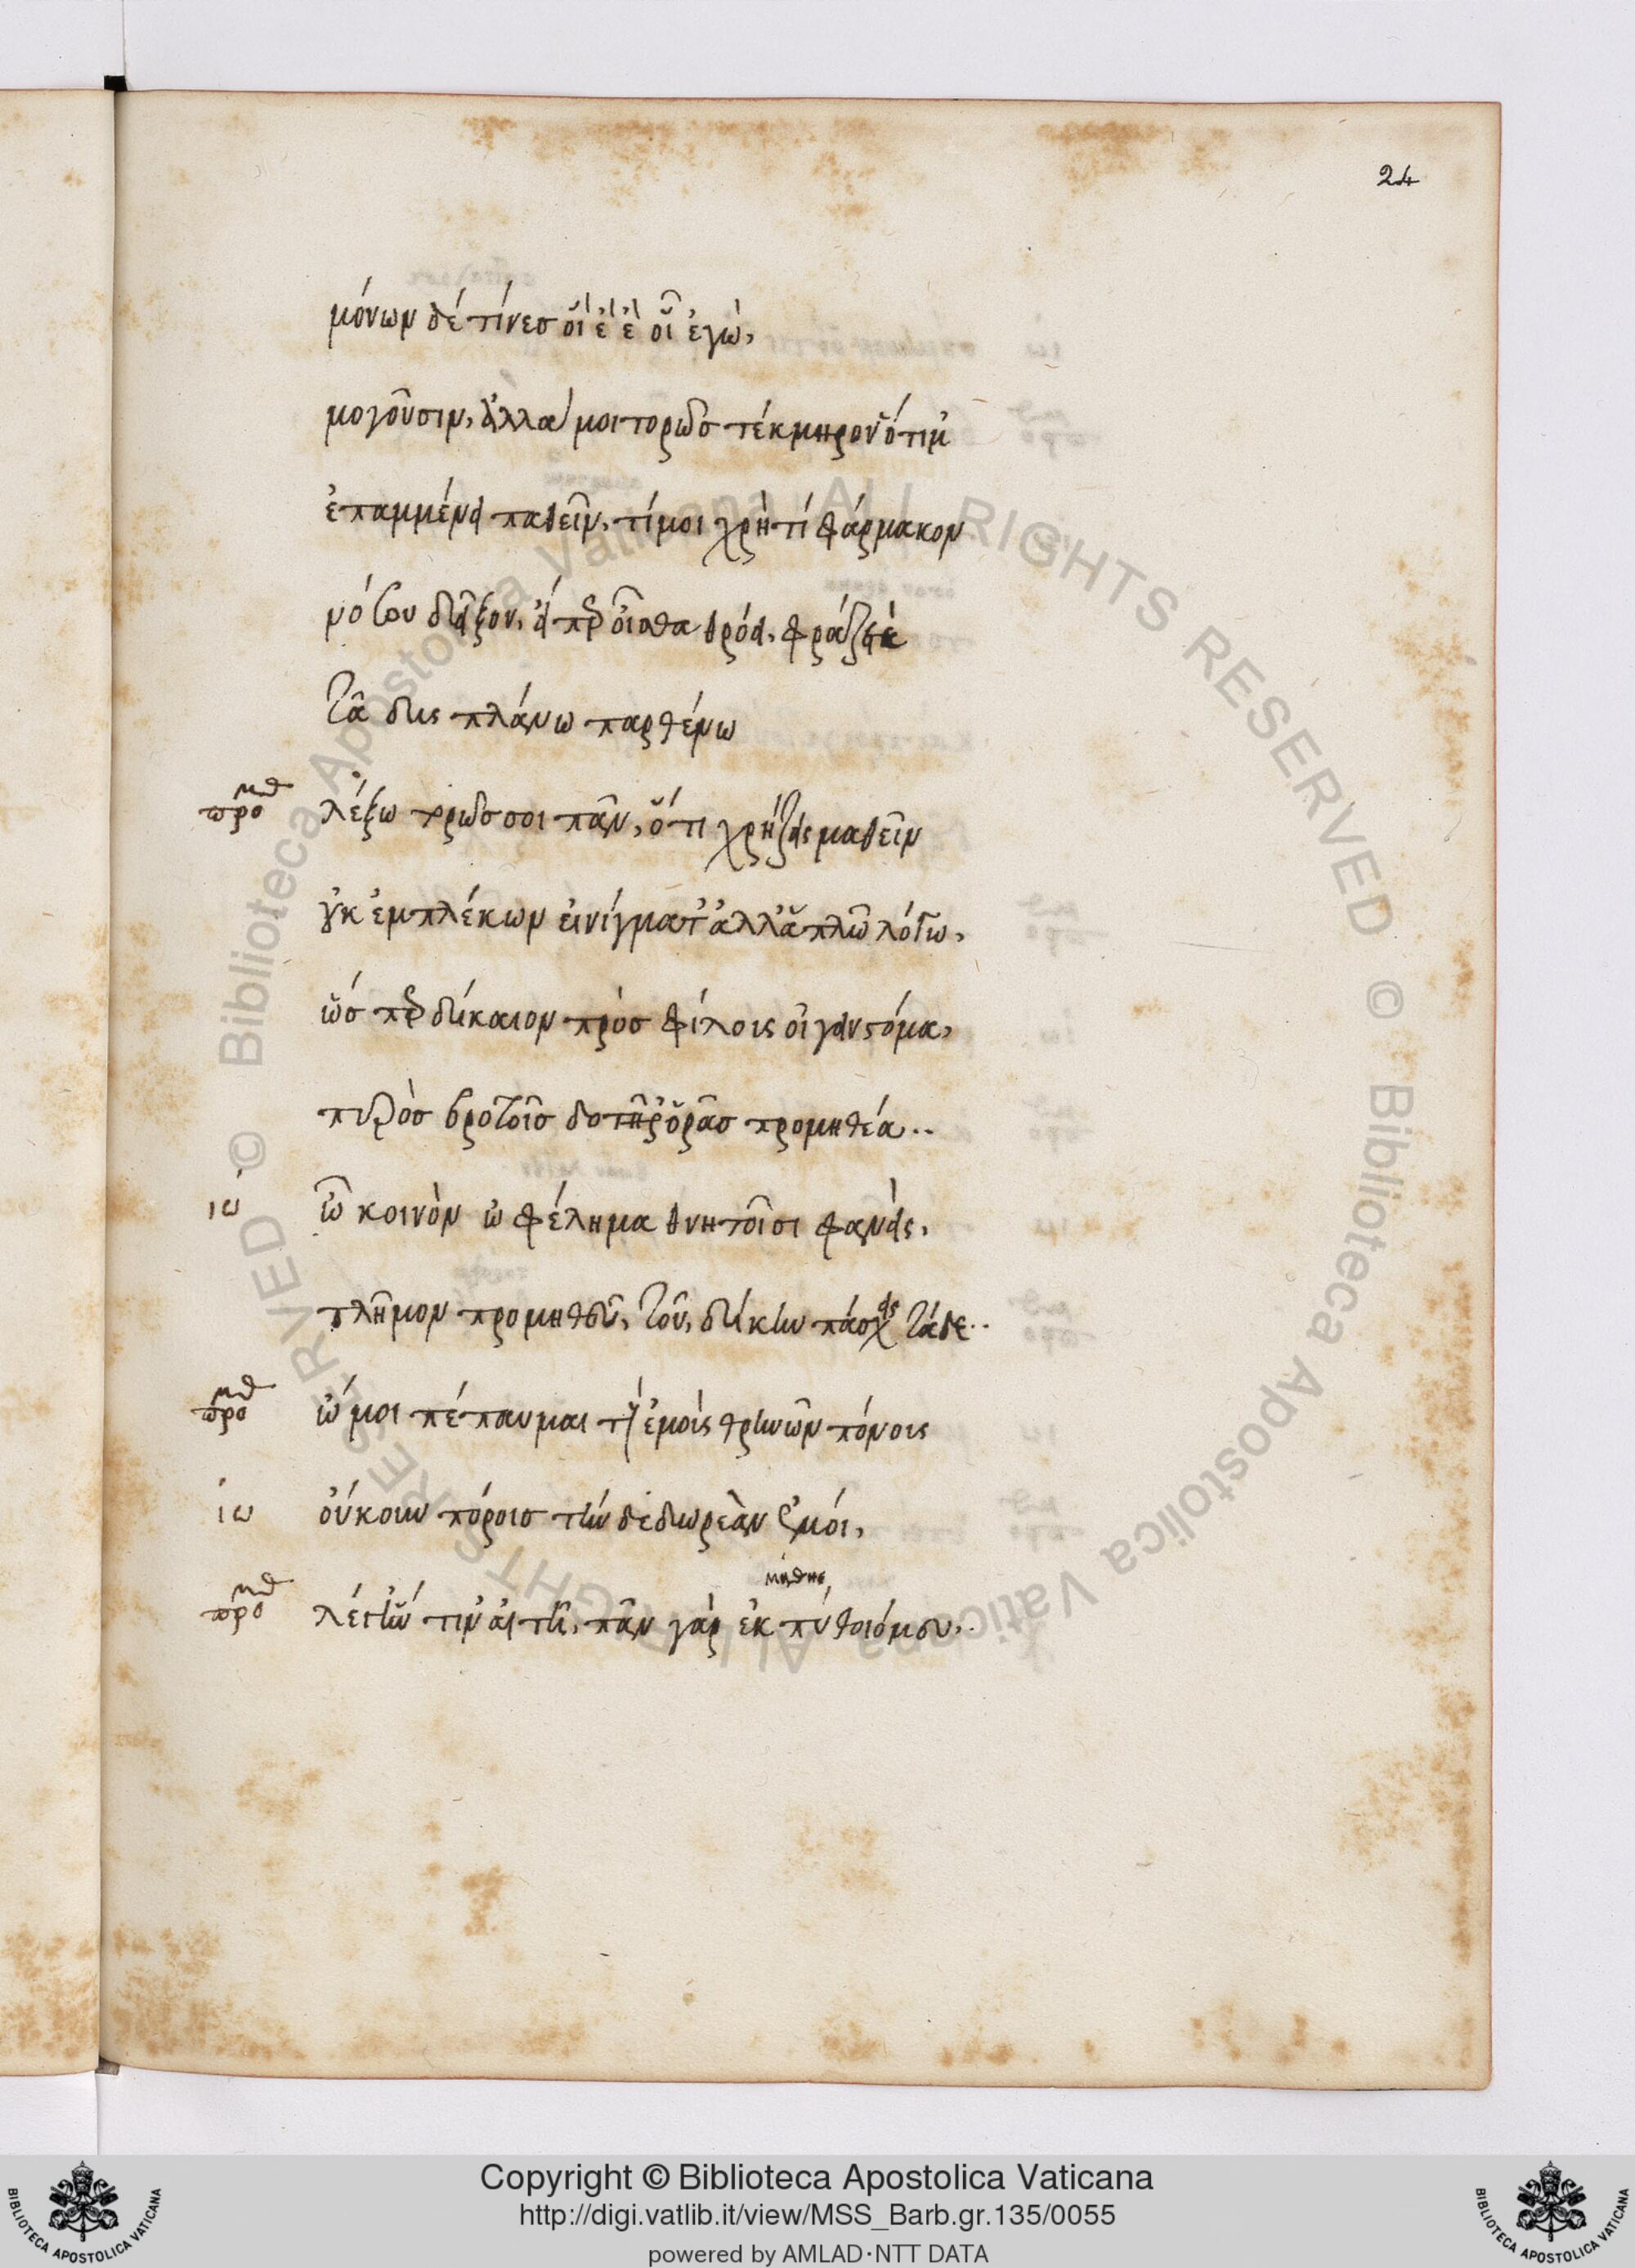 24
μόνων δέ τίνεσ οἵ ἒ ἒ οἷ ἐγὼ,
μογοῦσιν, ἀλλά μοι τορῶσ τέκμηρον ὅτι μ'
ἐπαμμένει παθεῖν, τί μοι χρὴ τί φάρμακον
νόσου δεῖξον, εἴπερ οἶσθα θρόει, φράζε
τᾶ δυς πλάνω παρθένω
προμθ λέξω τορῶσ σοι πᾶν, ὅτι χρήζεις μαθεῖν
οὐκ ἐμπλέκων αἰνίγματ' ἀλλ' ἁπλῶ λόγω,
ὥσ περ δίκαιον πρὸσ φίλοις οἴγειν στόμα,
πυρὸσ βροτοῖσ δοτῆρ' ὁρᾶσ προμηθέα..
ιω ὦ κοινὸν ὠφέλημα θνητοῖσι φανεὶς,
τλῆμον προμηθεῦ, τοῦ, δίκην πάσχεις τάδε..
προμθ ὤμοι πέπαυμαι τοὺς ἐμοὺς θρηνῶν πόνοις
ἰω οὔκουν πόροισ τήνδε δωρεὰν ἐμοί,
προμθ λέγ' ἥν τιν' αἰτῆ, πᾶν γὰρ ἐκπύθοιό μου,.
Copyright © Biblioteca Apostolica Vaticana
http://digi.vatlib.it/view/MSS_Barb.gr.135/0055
powered by AMLAD·NTT DATA
BIBLIOTECA APOSTOLICA VATICANA
BIBLIOTECA APOSTOLICA VATICANA
© Biblioteca Apostolica Vaticana ALL RIGHTS RESERVED
© Biblioteca Apostolica Vaticana ALL RIGHTS RESERVED